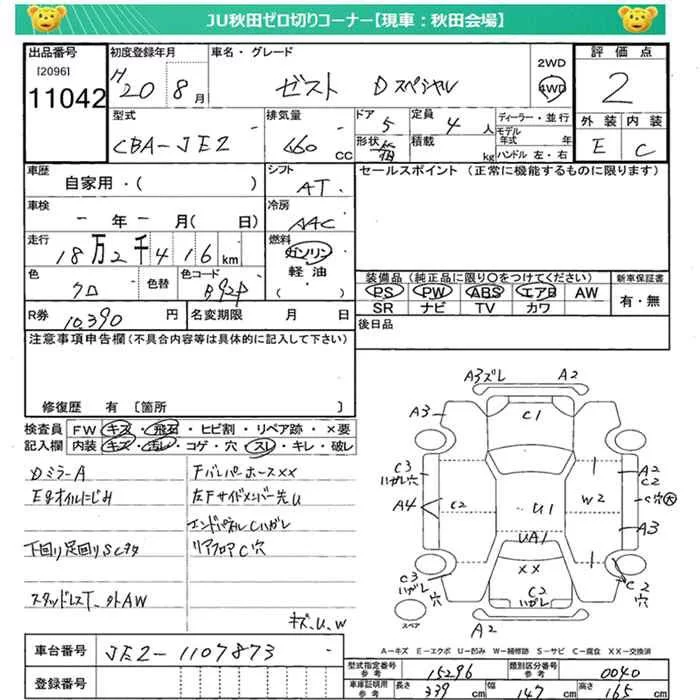 JU秋田ゼロ切りコーナー【現車：秋田会場】
出品番号
[2096]
11042
初度登録年月
H20 8月
車名・グレード
ゼスト Dスペシャル
2WD
4WD
評価点
2
外装 内装
E C
型式
CBA-JE2
排気量
660 cc
ドア 5
定員 4人
形状 箱
積載 kg
ディーラー・並行
モデル年式 年
ハンドル 左・右
車歴
自家用・( )
シフト
AT
セールスポイント (正常に機能するものに限ります)
車検
-年-月( 日)
冷房
AAC
走行
18万2千416km
燃料
ガソリン
軽油
( )
色
クロ
色替
色コード
B92P
装備品 (純正品に限り○をつけてください)
PS PW ABS エアB AW
SR ナビ TV カワ
新車保証書
有・無
R券
10,390円
名変期限 月 日
後日品
注意事項申告欄 (不具合内容等は具体的に記入して下さい)
修復歴 有 [箇所 ]
検査員記入欄
FW キズ・飛石・ヒビ割・リペア跡・×要
内装 キズ・汚レ・コゲ・穴・スレ・キレ・破レ
DミラーA
Egオイルにじみ
下回り足回りSヒタ
スタッドレスT 外AW
FバンパーホースXX
左Fサイドメンバー先U
エンドパネルCハガレ
リアフロアC穴
キズ、U、W
A3ズレ A2
A3
C1
C3
ハガレ穴
A4
C2
U1
W2
A2
C2
C穴大
A3
UA1
XX
C3
穴
C2
ハガレ
C2
穴
スペア
A2
A=キズ E=エクボ U=凹み W=補修跡 S=サビ C=腐食 XX=交換済
車台番号
JE2-1107873
登録番号
型式指定番号 参考
15296
類別区分番号 参考
0040
車庫証明用 参考
長さ 339 cm
幅 147 cm
高さ 165 cm